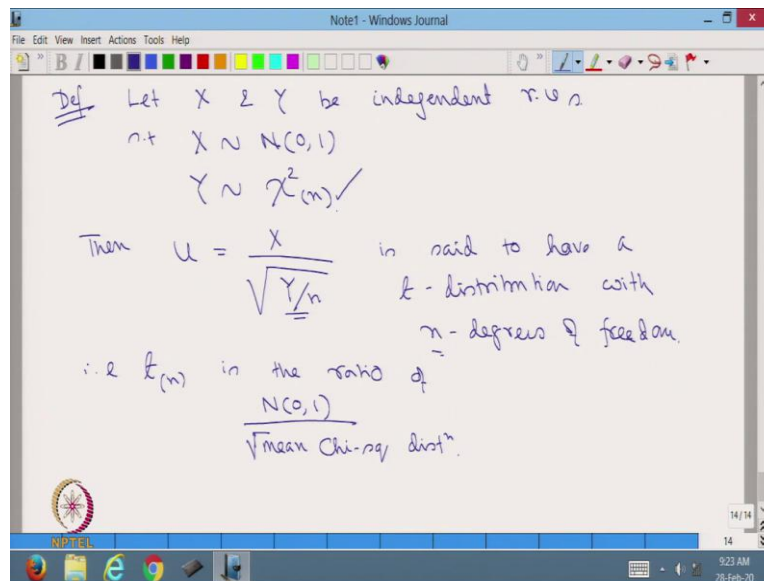 Note1 - Windows Journal
File Edit View Insert Actions Tools Help
Def Let X & Y be independent r.v s
s.t X ~ N(0,1)
Y ~ χ²(n) ✓
Then U = X / √(Y/n) is said to have a
t - distribution with
n - degrees of freedom.
i.e t(n) is the ratio of
N(0,1)
√mean Chi-sq distⁿ.
NPTEL
14/14
14
9:23 AM
28-Feb-20